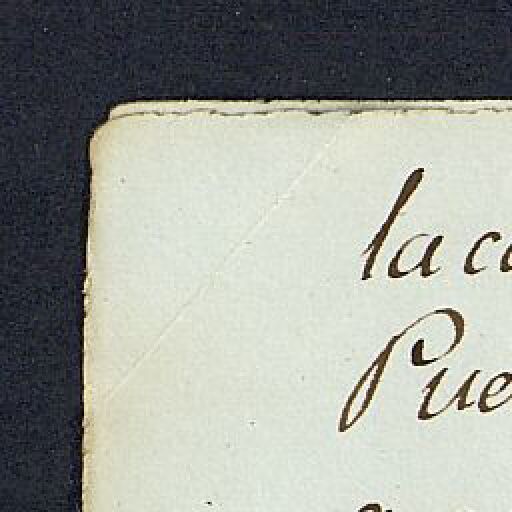 la ca
Pue